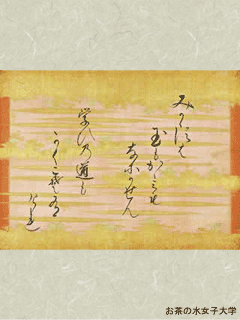 みかゝすは
玉もかゝみも
なにかせん
学ひの道も
かくこそ有
けれ
お茶の水女子大学